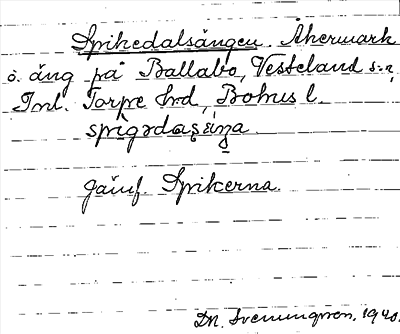 Spikedalsängen. Åkermark
o. äng på Ballabo, Vesteland s:n,
Inl. Torpe Hrd, Bohus l.
Jämf. Spikerna.
Dr. Svenungsson. 1940.